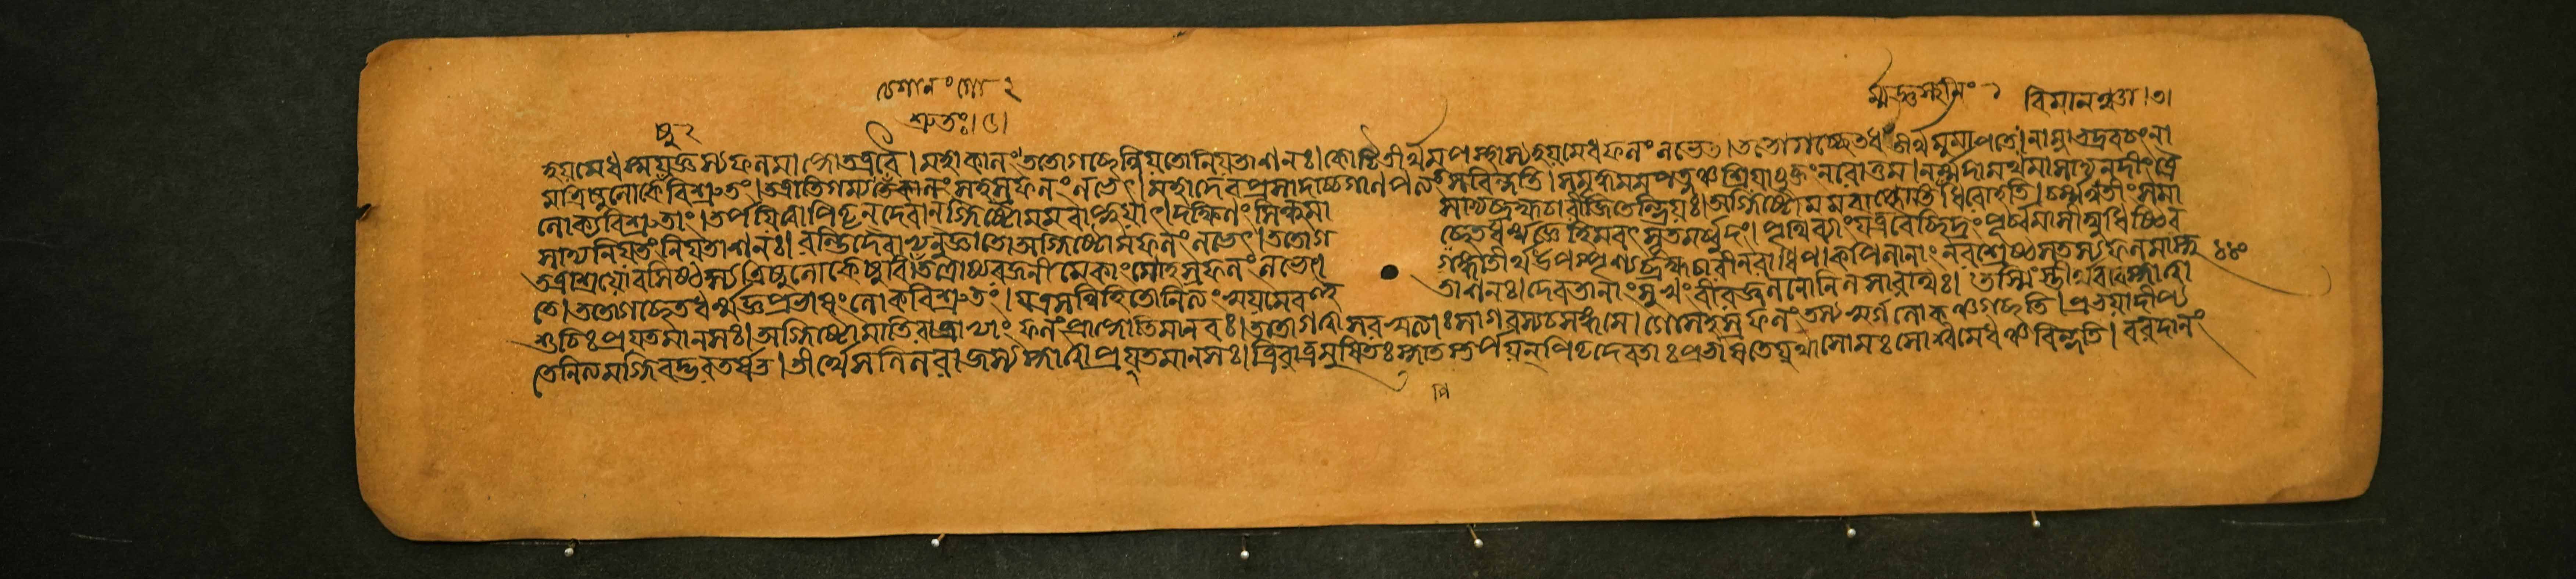 চেশানং গো ২
শ্রুতঃ।৫।
ষু ২
বিমানঞ্চতা।৩।
হয়মেধস্য যজ্ঞস্য ফলমাপ্নোতি তত্র বৈ। মহাকালং ততো গচ্ছেন্নিয়তো নিয়তাশনঃ। কোটিতীর্থমুপস্পৃশ্য হয়মেধফলং লভেত। ততো গচ্ছেত ধ তীর্থমুমাপতেঃ। নাম্না ভদ্রবটং না
ম ত্রিষু লোকে বিশ্রুতং। তত্রাভিগম্য সহস্রফলং লভেৎ। মহাদেবপ্রসাদাচ্চ গাণপত্যঞ্চ বিন্দতি। শ্রিয়া যুক্তং নরোত্তম। নর্ম্মদামথমাসাদ্য নদীং ত্রৈ
লোক্যবিশ্রুতাং। তর্পয়িত্বা পিতৃন দেবানগ্নিষ্টোমমবাপ্নুয়াৎ। দক্ষিণং সিন্ধুমা সাদ্য ব্রহ্মচারী জিতেন্দ্রিয়ঃ। অগ্নিষ্টোমমবাপ্নোতি বিমানঞ্চাধিরোহতি। চর্ম্মণ্বতীং সমা
সাদ্য নিয়তং নিয়তাশনঃ। রন্তিদেবাভ্যনুজ্ঞাতো অগ্নিষ্টোমফলং লভেৎ। ততো গ চ্ছেত ধর্ম্মজ্ঞ হিমবৎসুতমর্ব্বুদং। পৃথিব্যাং যত্র বৈ চ্ছিদ্রং পূর্ব্বমাসীদ্যুধিষ্ঠির
তত্রাশ্রমো বসিষ্ঠস্য ত্রিষু লোকেষু বি তত্রোষ্য রজনীমেকাং গোসহস্রফলং লভেৎ পিঙ্গাতীর্থমুপস্পৃশ্য ব্রহ্মচারী নরাধিপ। কপিলানাং নরশ্রেষ্ঠ শতস্য ফলমাপ্নু
তে। ততো গচ্ছেত ধর্ম্মজ্ঞ প্রভাসং লোকবিশ্রুতং। যত্র সন্নিহিতো নিত্যং স্বয়মেব হু তাশনঃ। দেবতানাং মুখং বীর জ্বলনোনিলসারথিঃ। তস্মিংস্তীর্থবরে স্নাত্বা
শুচিঃ প্রয়তমানসঃ। অগ্নিষ্টোমাতিরাত্রাভ্যাং ফলং প্রাপ্নোতি মানবঃ। ততো গত্বা সরস্বত্যাঃ সাগরস্য চ সঙ্গমে। গোসহস্রফলং তস্য স্বর্গলোকঞ্চ গচ্ছতি। প্রভয়া দীপ্য
তে নিত্যমগ্নিবদ্ভরতর্ষভ। তীর্থে সলিলরাজস্য স্নাত্বা প্রয়তমানসঃ। ত্রিরাত্রমুষিতঃ স্নাতস্তর্পয়ন্ পিতৃদেবতাঃ প্রভাসতে যথা সোমঃ সোশ্বমেধঞ্চ বিন্দতি। বরদানং